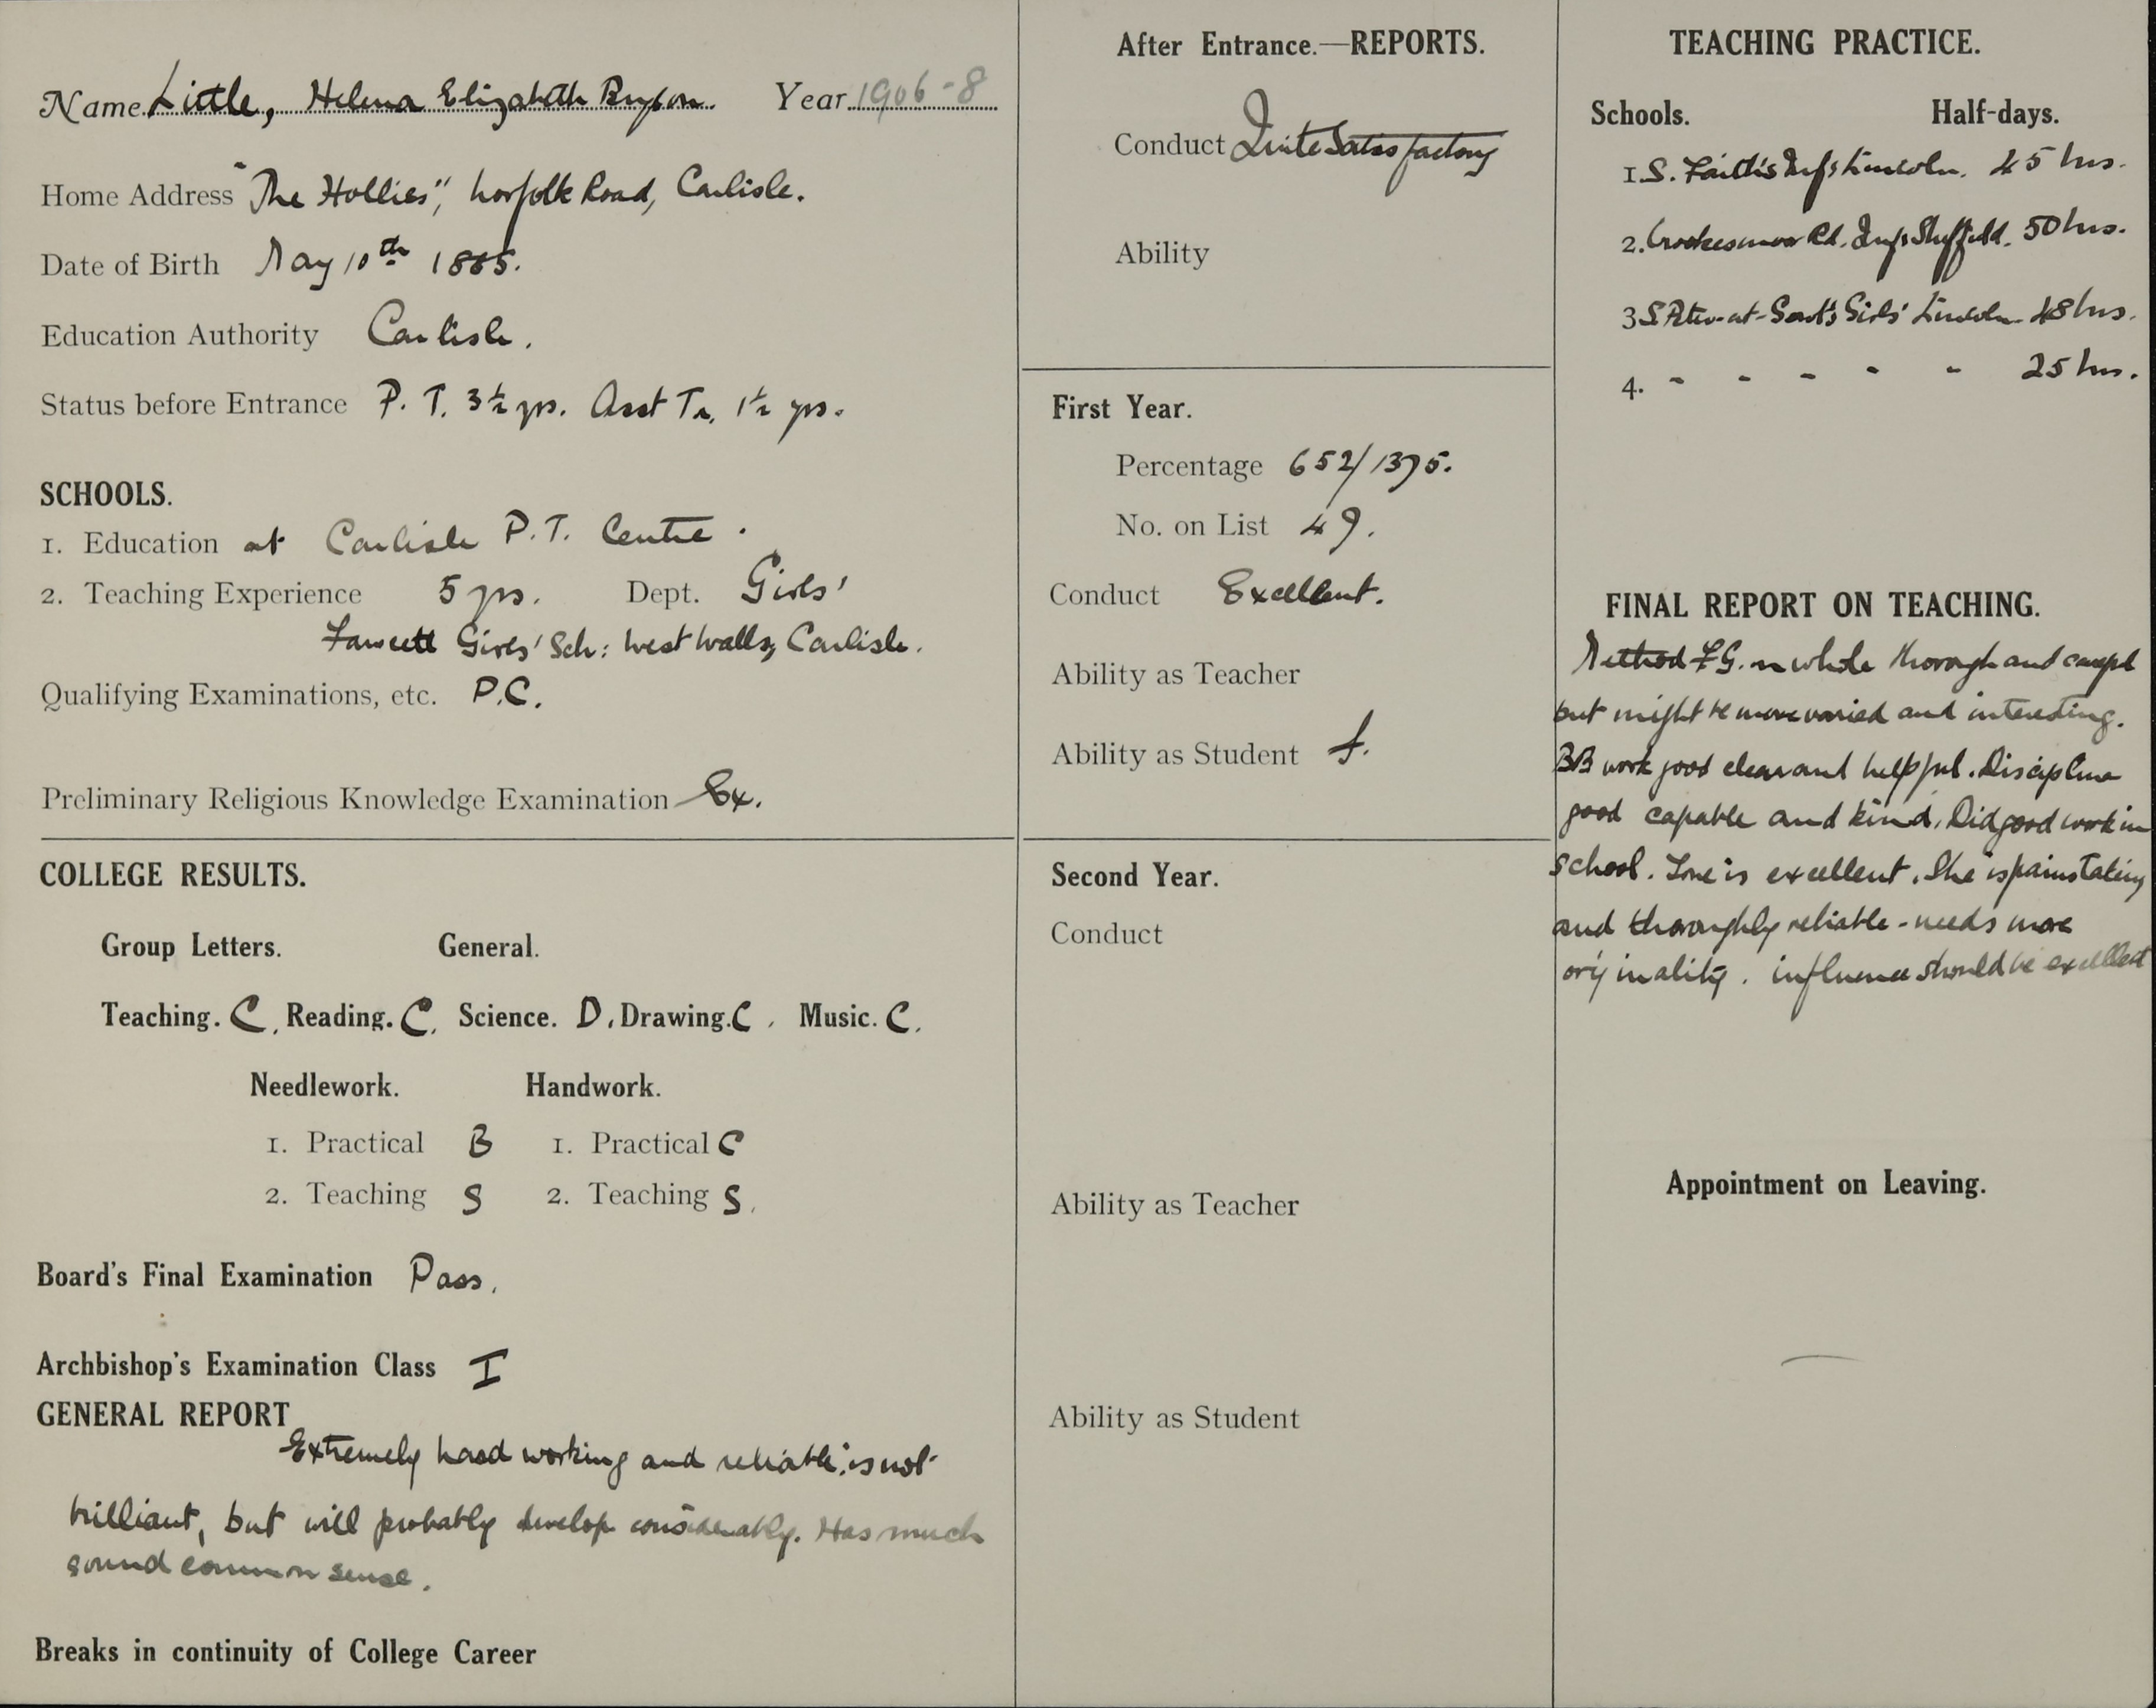 Name Little, Helena Elizabeth Bryson. Year 1906-8
Home Address "The Hollies", Norfolk Road, Carlisle.
Date of Birth May 10th 1885.
Education Authority Carlisle.
Status before Entrance P. T. 3½ yrs. Asst Tr. 1½ yrs.
SCHOOLS.
1. Education at Carlisle P.T. Centre.
2. Teaching Experience 5 yrs. Dept. Girls'
Fawcett Girls' Sch: West Walls, Carlisle.
Qualifying Examinations, etc. P.C.
Preliminary Religious Knowledge Examination Ex.
COLLEGE RESULTS.
Group Letters. General.
Teaching. C, Reading. C, Science. D, Drawing. C, Music. C.
Needlework. Handwork.
1. Practical B 1. Practical C
2. Teaching S 2. Teaching S.
Board's Final Examination Pass.
Archbishop's Examination Class I
GENERAL REPORT
Extremely hard working and reliable; is not
brilliant, but will probably develop considerably. Has much
sound common sense.
Breaks in continuity of College Career
After Entrance.—REPORTS.
Conduct Quite Satisfactory
Ability
First Year.
Percentage 652/1375.
No. on List 49.
Conduct Excellent.
Ability as Teacher
Ability as Student f.
Second Year.
Conduct
Ability as Teacher
Ability as Student
TEACHING PRACTICE.
Schools. Half-days.
1. S. Faith's Infs Lincoln. 45 hrs.
2. Crookesmoor Rd. Infs Sheffield. 50 hrs.
3 S. Peter-at-Gowt's Girls' Lincoln 48 hrs.
4. - - - - - 25 hrs.
FINAL REPORT ON TEACHING.
Method F.G. on whole thorough and careful
but might be more varied and interesting.
BB work good clear and helpful. Discipline
good capable and kind. Did good work in
school. Tone is excellent. She is painstaking
and thoroughly reliable - needs more
originality. influence should be excellent
Appointment on Leaving.